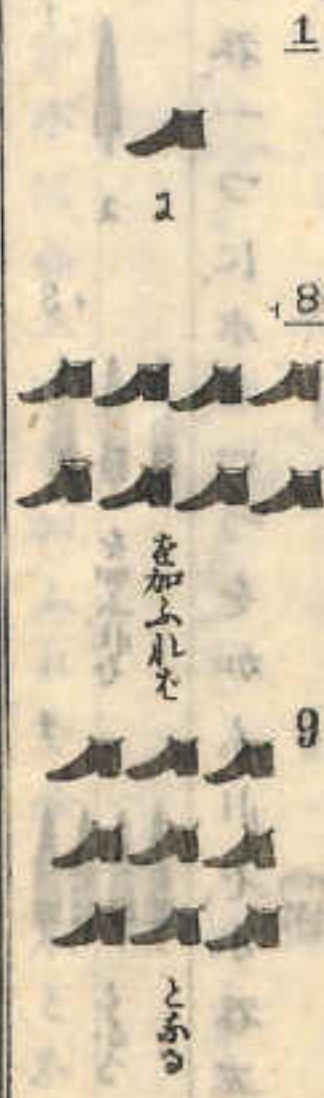 1
に
8
を加ふれば
9
となる